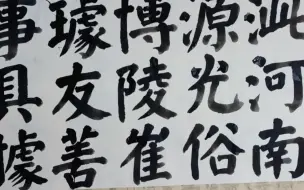 泚河南
源光俗
博陵崔
璩友善
事具據